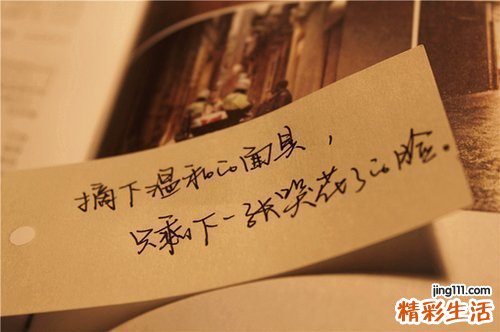 摘下温和的面具，
只剩下一张哭花了的脸。
jing111.com
精彩生活